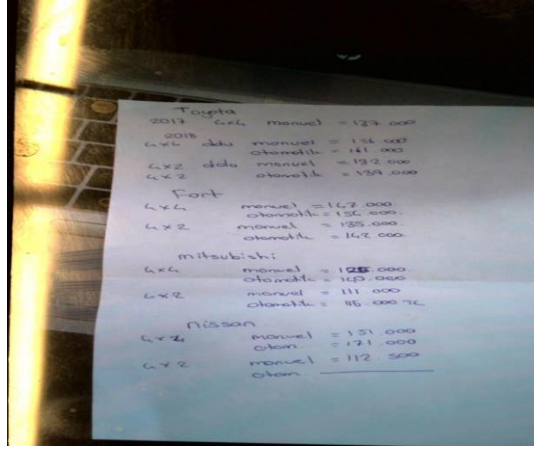 Toyota
2017 4x4 manuel = 137.000
2018
4x4 ddu manuel = 156 000
otomatik = 161.000
4x2 ddu manuel = 132.000
4x2 otomatik = 139.000
Fort
4x4 manuel = 147.000
otomatik = 156.000
4x2 manuel = 135.000
otomatik = 142 000
mitsubishi
4x4 manuel = .000
otomatik = 140.000
4x2 manuel = 111 000
otomatik = 115 000 TL
nissan
manuel = 151 000
otom = 171 000
4x2 manuel = 112 500
otom